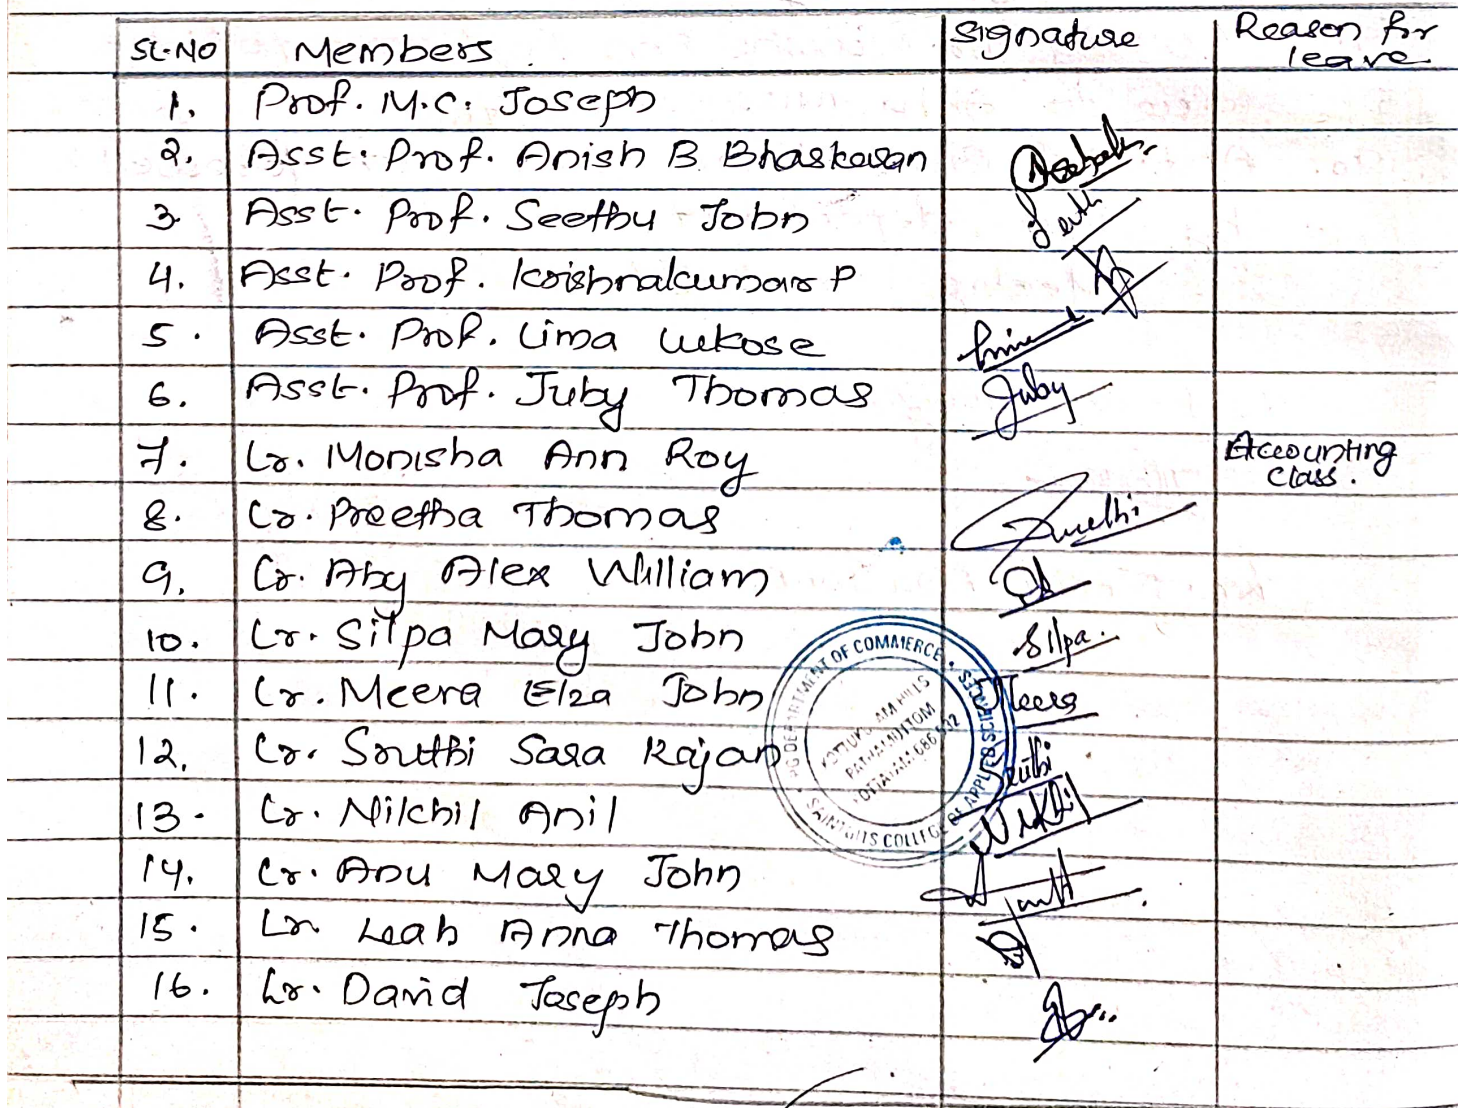 SL.NO Members Signature Reason for leave
1. Prof. M.C. Joseph
2. Asst. Prof. Anish B Bhaskaran
3. Asst. Prof. Seethu John Seeth
4. Asst. Prof. Krishnakumar P
5. Asst. Prof. Lima Lukose
6. Asst. Prof. Juby Thomas Juby
7. Lr. Monisha Ann Roy Accounting class.
8. Lr. Preetha Thomas
9. Lr. Aby Alex William
10. Lr. Silpa Mary John Silpa.
11. Lr. Meera Elza John Meera
12. Lr. Sruthi Sara Rajan Sruthi
13. Lr. Nikhil Anil Nikhil
14. Lr. Anu Mary John
15. Lr. Leah Anna Thomas
16. Lr. David Joseph
PG DEPARTMENT OF COMMERCE
SAINTGITS COLLEGE OF APPLIED SCIENCES
KOTTUKULAM HILLS
PATHAMUTTOM
KOTTAYAM 686 532